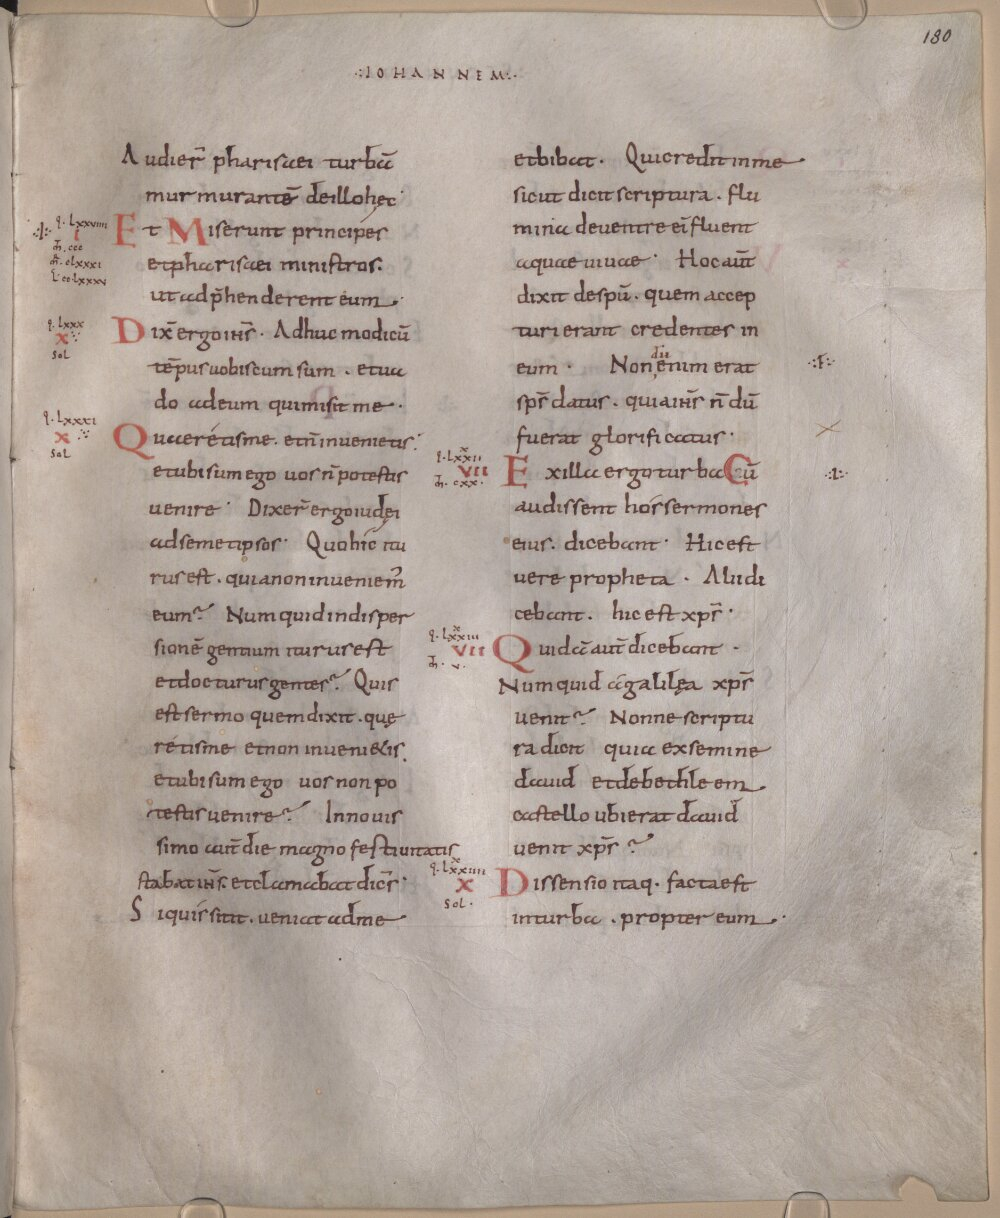 180
·:IOHANNEM·
Audier̄ pharisaei turbā
murmurantē deillo hęc·
q. Lxxviiii
I
m̄. ccc
m̄. clxxxi
L̄ cclxxxv
Et Miserunt principes
et pharisaei ministros.
ut adp̄henderent eum·
q. Lxxx
x
sol
Dix̄ ergo ihs̄· Adhuc modicū
tēpus uobiscum sum· et ua
do ad eum qui misit me·
q. Lxxxi
x
sol
Quaeretis me· et n̄ inuenietis·
et ubi sum ego uos n̄ potestis
uenire· Dixer̄ ergo iudęi
ad semetipsos· Quo hic itu
rus est· quia non inueniem̄
eum? Numquid in disper
sionē gentium iturus est
et docturus gentes? Quis
est sermo quem dixit· quę
retis me et non inuenietis.
et ubi sum ego uos non po
testis uenire? In nouis
simo aut̄ die magno festiuitatis
stabat ihs̄. et clamabat dicēs·
Si quis sitit· ueniat ad me
et bibat· Qui credit in me
sicut dicit scriptura· flu
mina de uentre eī fluent
aquae uiuae· Hoc aūt
dixit de sp̄u· quem accep
turi erant credentes in
eum· Non enim erat
sps̄ datus· quia ihs̄ n̄ dū
fuerat glorificatus·
q. Lxxxii
VII
m̄. cxx·
Ex illa ergo turba Cū
audissent hos sermones
eius. dicebant· Hic est
uere propheta· Alii di
cebant. hic est xps̄·
q. Lxxxiii
VII
m̄. v·
Quidā aut̄ dicebant·
Numquid a galilęa xps̄
uenit? Nonne scriptu
ra dicit quia ex semine
dauid et de bethleem
castello ubi erat dauid
uenit xps̄?
q. Lxxxiiii
x
sol·
Dissensio itaq· facta est
in turba· propter eum·